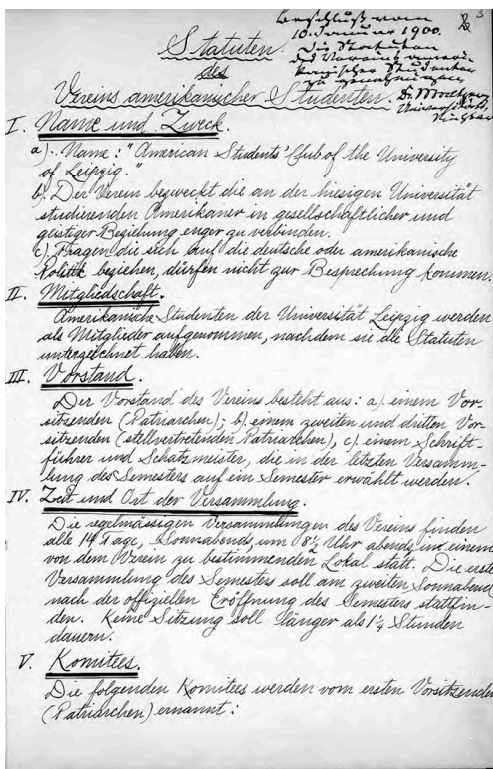 Beschluß vom
10. Januar 1900.
Die Statuten
des Vereins ameri-
kanischer Studenten
zu genehmigen.
3
Statuten
des
Vereins amerikanischer Studenten.
I. Name und Zweck.
a). Name: "American Students' Club of the University
of Leipzig."
b). Der Verein bezweckt die an der hiesigen Universität
studierenden Amerikaner in gesellschaftlicher und
geistiger Beziehung enger zu verbinden.
c). Fragen die sich auf die deutsche oder amerikanische
Politik beziehen, dürfen nicht zur Besprechung kommen.
II. Mitgliedschaft.
Amerikanische Studenten der Universität Leipzig werden
als Mitglieder aufgenommen, nachdem sie die Statuten
unterzeichnet haben.
III. Vorstand.
Der Vorstand des Vereins besteht aus: a). einem Vor-
sitzenden (Patriarchen); b). einem zweiten und dritten Vor-
sitzenden (stellvertretenden Patriarchen), c). einem Schrift-
führer und Schatzmeister, die in der letzten Versamm-
lung des Semesters auf ein Semester erwählt werden.
IV. Zeit und Ort der Versammlung.
Die regelmässigen Versammlungen des Vereins finden
alle 14 Tage, Sonnabends, um 8½ Uhr abends in einem
von dem Verein zu bestimmenden Lokal statt. Die erste
Versammlung des Semesters soll am zweiten Sonnabend
nach der offiziellen Eröffnung des Semesters stattfin-
den. Keine Sitzung soll länger als 1¼ Stunden
dauern.
V. Komitees.
Die folgenden Komitees werden vom ersten Vorsitzenden
(Patriarchen) ernannt: